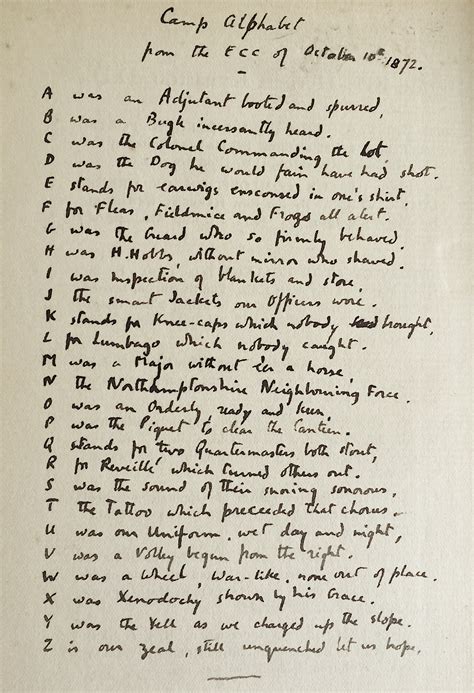 Camp Alphabet
from the ECC of October 10th 1872.
A was an Adjutant booted and spurred,
B was a Bugle incessantly heard.
C was the Colonel Commanding the lot,
D was the Dog he would fain have had shot.
E stands for earwigs ensconsed in one's shirt,
F for Fleas, Fieldmice and Frogs all alert.
G was the Guard who so firmly behaved,
H was H. Hobbs, without mirror who shaved.
I was inspection of blankets and store,
J the smart Jackets our Officers wore.
K stands for Knee-caps which nobody brought,
L for Lumbago which nobody caught.
M was a Major without e'er a horse,
N the Northamptonshire Neighbouring Force.
O was an Orderly, ready and keen,
P was the Piquet to clear the Canteen.
Q stands for two Quartermasters both stout,
R for Reveillé which turned others out.
S was the sound of their snoring sonorous,
T the Tattoo which preceeded that chorus.
U was our Uniform, wet day and night,
V was a Volley begun from the right.
W was a Wheel, war-like, none out of place.
X was Xenodochy shown by his Grace.
Y was the Yell as we charged up the slope.
Z is our zeal, still unquenched let us hope.